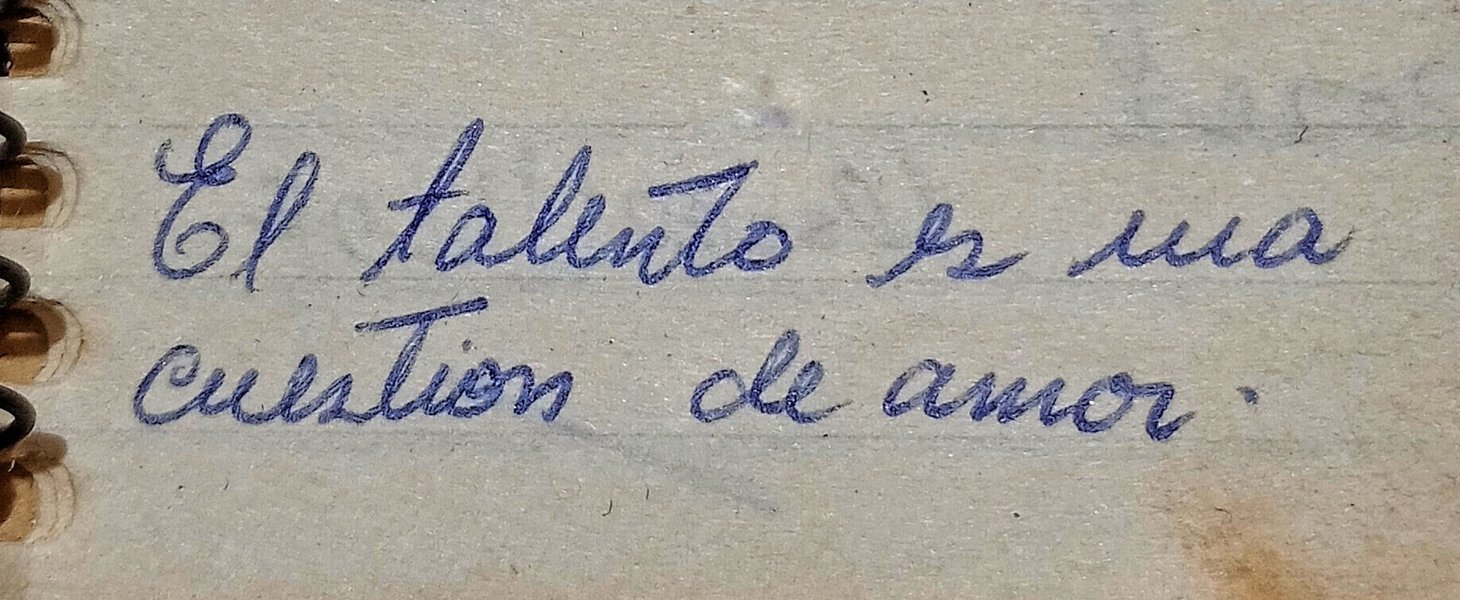 El talento es una
cuestion de amor.